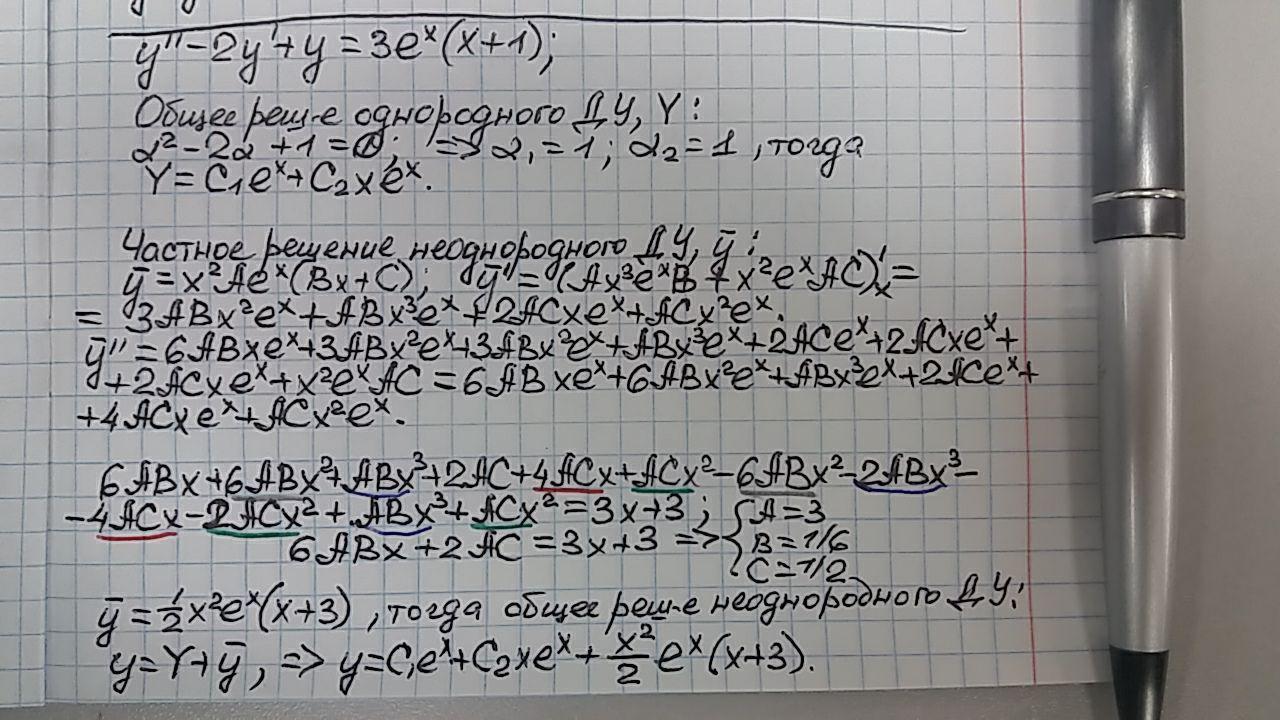 y'' - 2y' + y = 3eˣ(x+1);
Общее реш-е однородного ДУ, Y:
α² - 2α + 1 = 0; => α₁ = 1; α₂ = 1, тогда
Y = C₁eˣ + C₂xeˣ.
Частное решение неоднородного ДУ, ȳ:
ȳ = x²Aeˣ(Bx+C); ȳ' = (Ax³eˣB + x²eˣAC)'ₓ =
= 3ABx²eˣ + ABx³eˣ + 2ACxeˣ + ACx²eˣ.
ȳ'' = 6ABxeˣ + 3ABx²eˣ + 3ABx²eˣ + ABx³eˣ + 2ACeˣ + 2ACxeˣ +
+ 2ACxeˣ + x²eˣAC = 6ABxeˣ + 6ABx²eˣ + ABx³eˣ + 2ACeˣ +
+ 4ACxeˣ + ACx²eˣ.
6ABx + 6ABx² + ABx³ + 2AC + 4ACx + ACx² - 6ABx² - 2ABx³ -
- 4ACx - 2ACx² + ABx³ + ACx² = 3x + 3; { A = 3
6ABx + 2AC = 3x + 3 => { B = 1/6
C = 1/2
ȳ = ½x²eˣ(x+3), тогда общее реш-е неоднородного ДУ:
y = Y + ȳ, => y = C₁eˣ + C₂xeˣ + x²/2 eˣ(x+3).